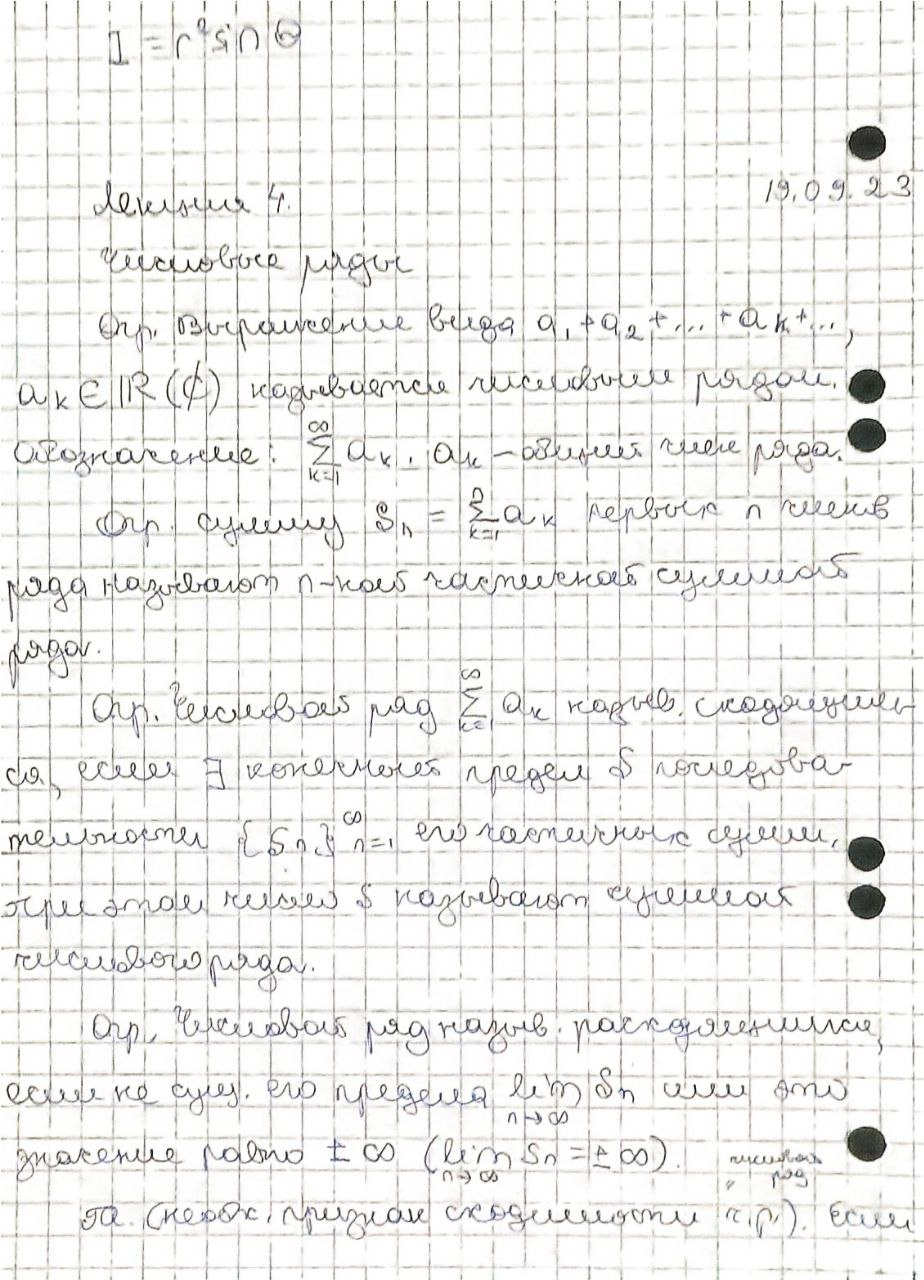 I = r² sin Θ
19.09.23
Лекция 4.
Числовые ряды
Опр. Выражение вида a₁+a₂+...+aₖ+...,
aₖ∈ℝ(ℂ) называется числовым рядом.
Обозначение: ∑ₖ₌₁^∞ aₖ. aₖ – общий член ряда.
Опр. сумму Sₙ = ∑ₖ₌₁ⁿ aₖ первых n членов
ряда называют n-ной частичной суммой
ряда.
Опр. Числовой ряд ∑ₖ₌₁^∞ aₖ назыв. сходящим-
ся, если ∃ конечный предел S последова-
тельности {Sₙ}ₙ₌₁^∞ его частичных сумм,
при этом число S называют суммой
числового ряда.
Опр. Числовой ряд назыв. расходящимся,
если не сущ. его предела lim Sₙ или это
n→∞
значение равно ±∞ (lim Sₙ = ±∞).
n→∞
числовой
" ряд
Т. (необх. признак сходимости ч.р.). Если